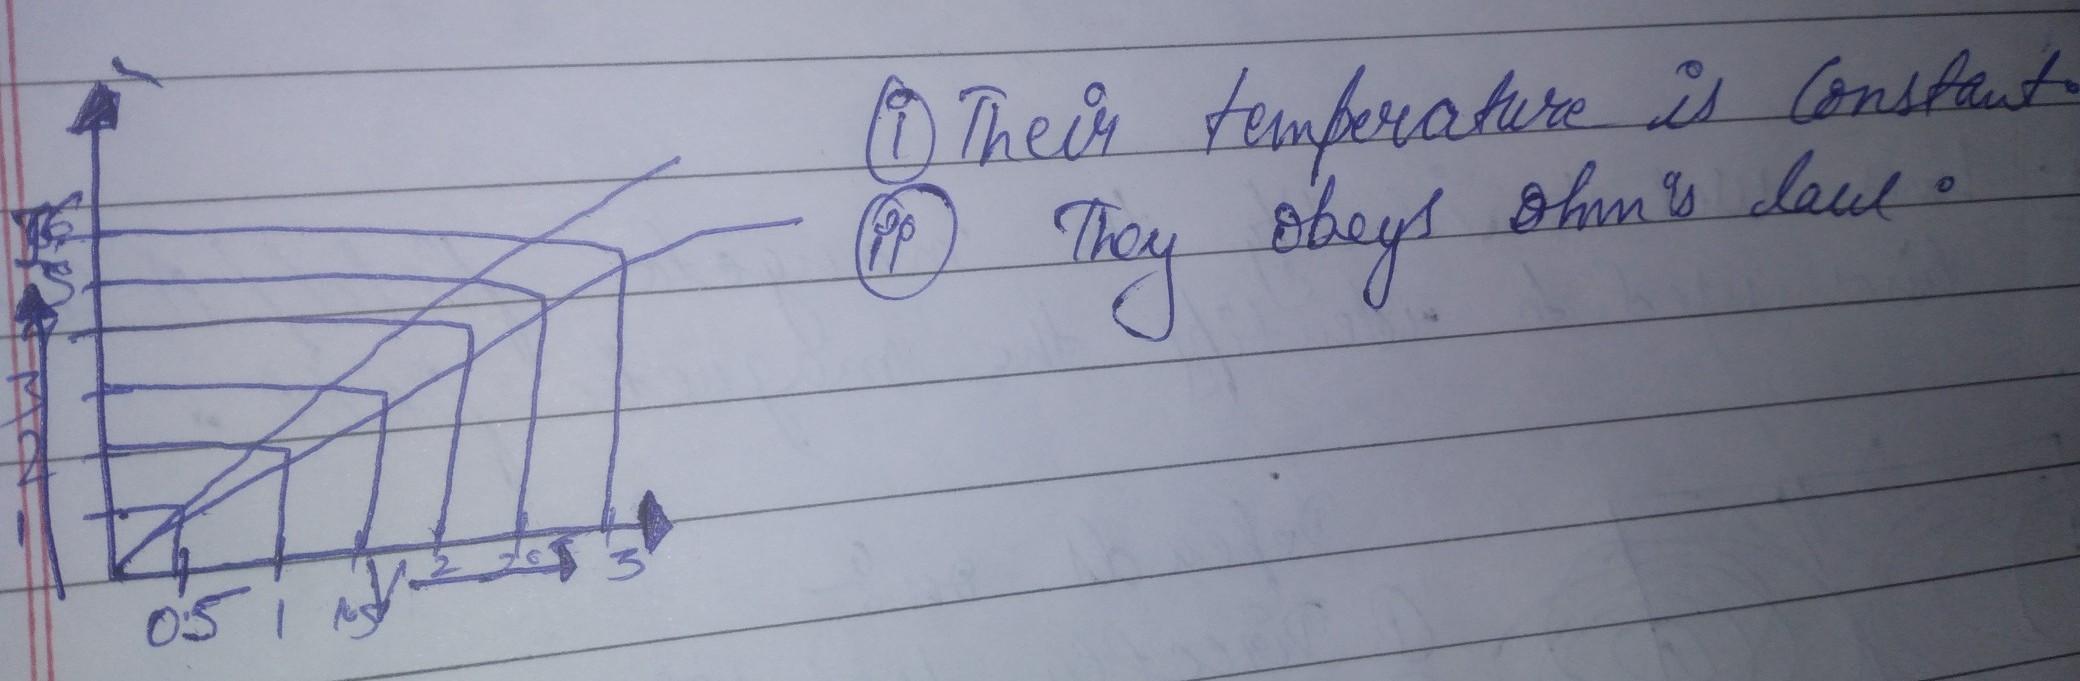 (i) Their temperature is Constant.
(ii) They obeys Ohm's law.
I 6
5
3
2
1
0.5 1 1.5 V 2 2.5 3